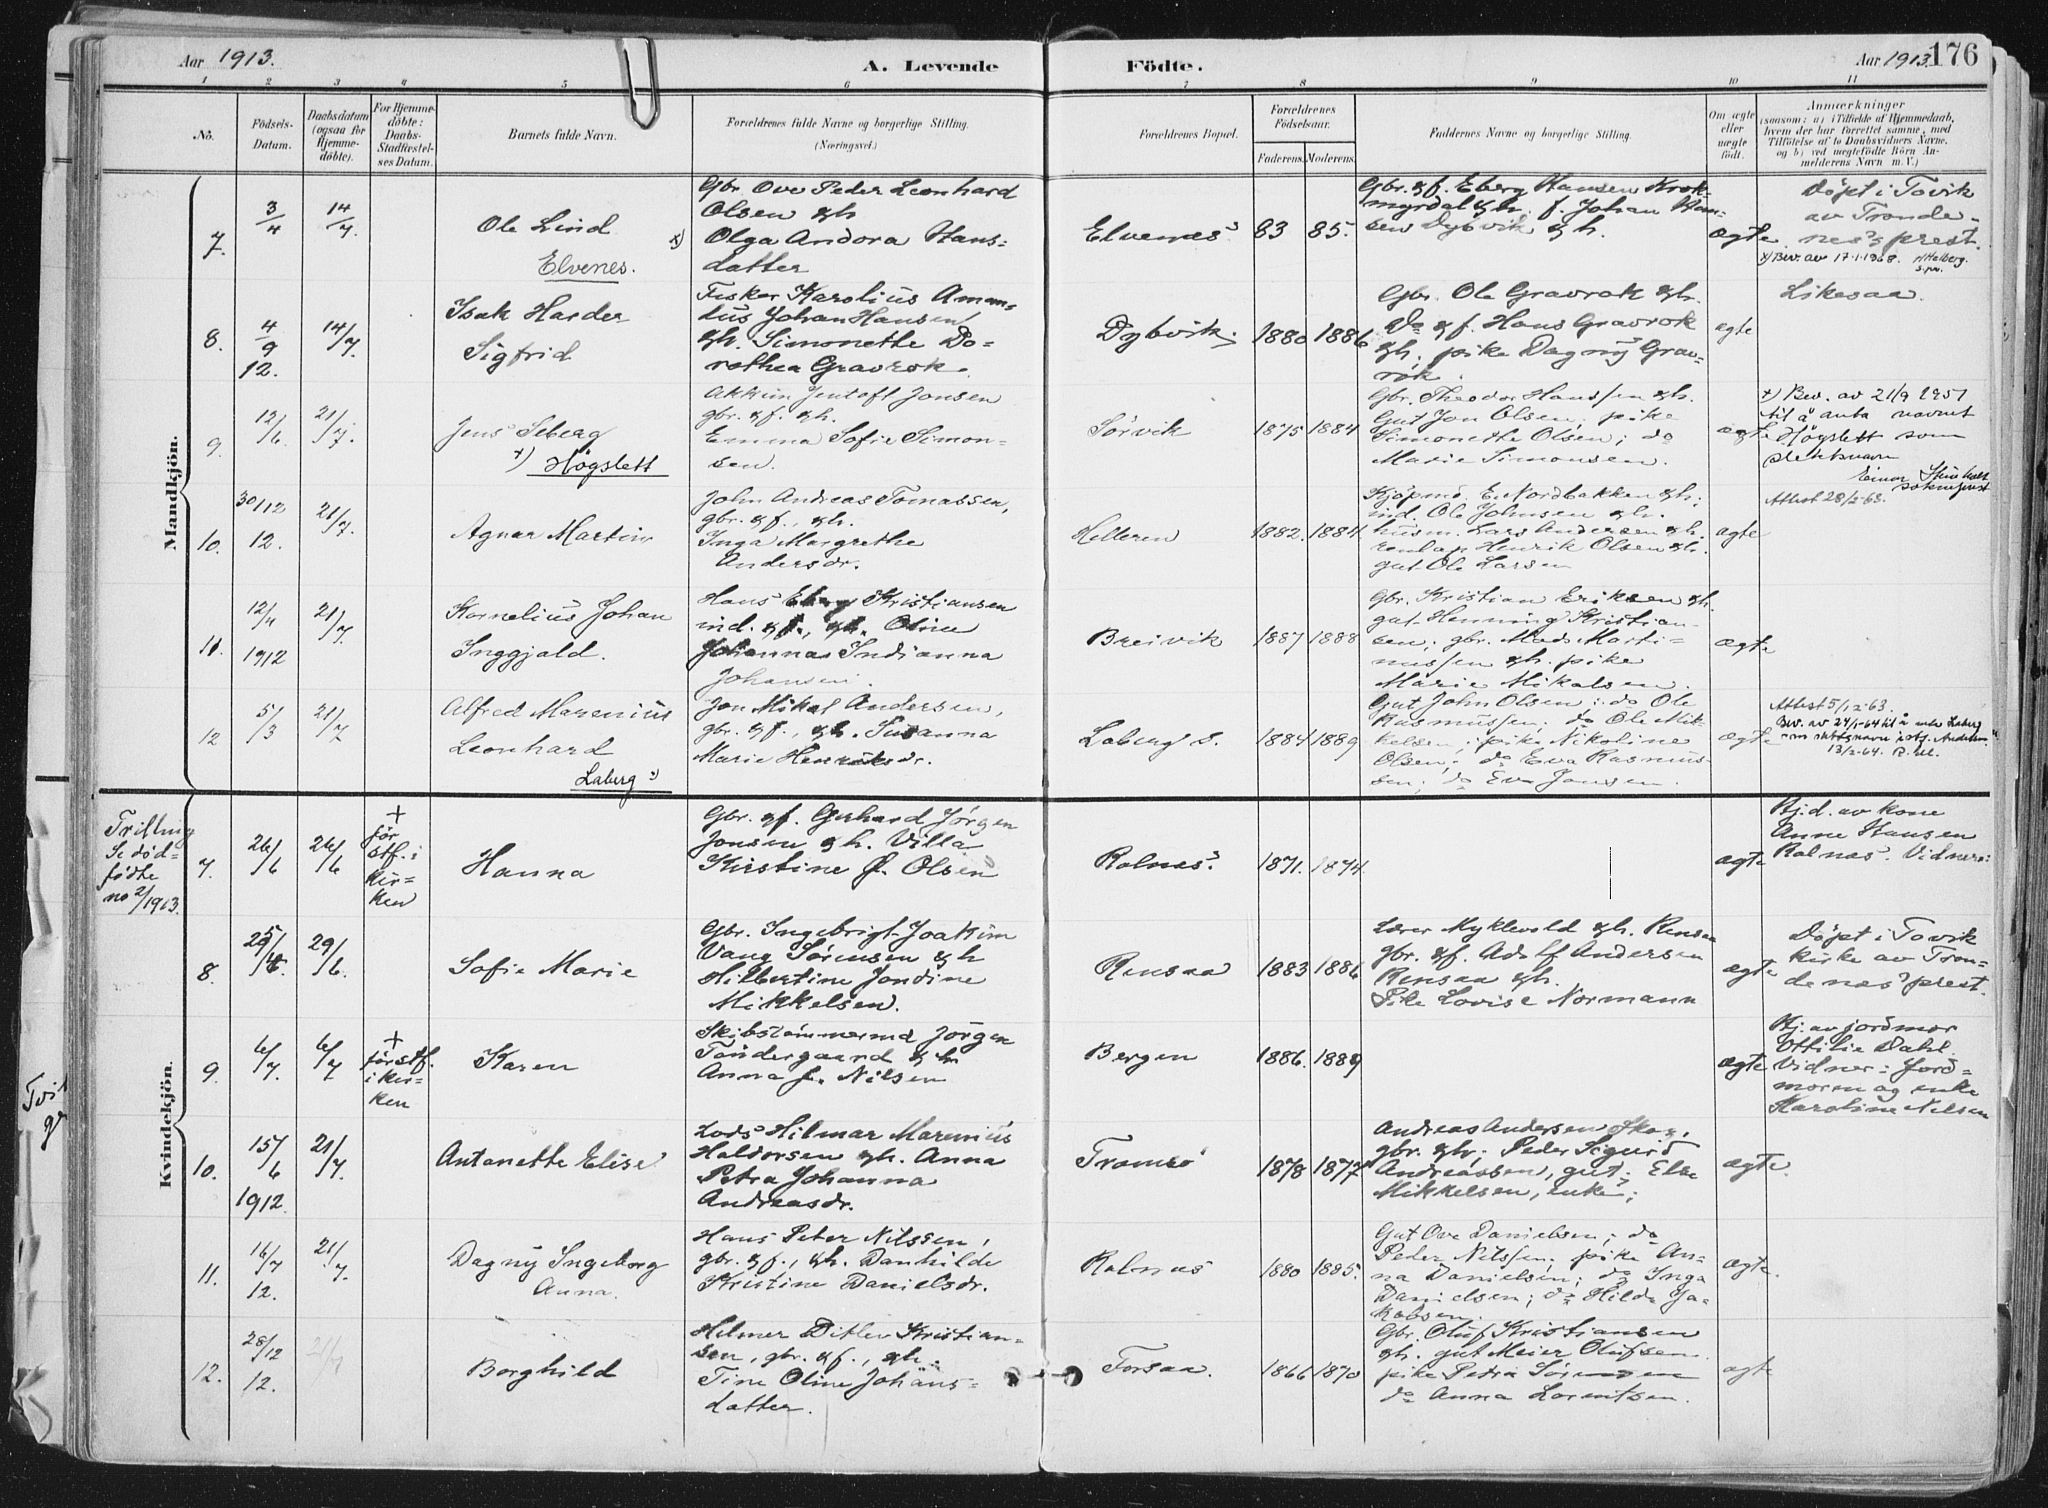 Aar 1913.
A. Levende
Födte.
Aar 1913.
176
1 2 3 4 5 6 7 8 9 10 11
No.
Födsels-
Datum.
Daabsdatum
(ogsaa for
Hjemme-
döbte).
For Hjemme-
döbte:
Daabs-
Stadfæstel-
ses Datum.
Barnets fulde Navn.
Forældrenes fulde Navne og borgerlige Stilling.
(Næringsvei.)
Forældrenes Bopæl.
Forældrenes
Födselsaar.
Faderens. Moderens.
Faddernes Navne og borgerlige Stilling.
Om ægte
eller
uægte
født.
Anmærkninger
(saasom: a) i Tilfælde af Hjemmedaab,
hvem der har forrettet samme, med
Tilföielse af to Daabsvidners Navne,
og b) ved uægtefödte Börn An-
melderens Navn m. V.)
Mandkjön.
7.
3/4
14/7
Ole Lind
Elvenes.
x)
Gbr. Ove Peder Leonhard
Olsen & h
Olga Andora Hans-
datter
Elvenæs
83
85.
Gbr. & f. Eberg Hansen Krok-
myrdal & h. f. Johan Han-
sen Dybvik & h.
ægte
Döpt i Tovik
av Tronde-
næs prest.
x) Bev. av 17-1-1968.
8.
4/9
12.
14/7
Isak Harder
Sigfrid
Fisker Karolius Aman-
dus Johan Hansen
& h. Simonette Do-
rothea Gravrok.
Dybvik.
1880
1886
Gbr. Ole Gravrok & h.
Do & f. Hans Gravrok
& h. pike Dagny Grav-
rok.
ægte
Likesaa.
9
12/6
21/7.
Jens Seberg
x) Högslett
Akkim Jentoft Jonsen
gbr. & f. & h.
Emma Sofie Simon-
sen.
Sörvik
1875
1884
Gbr. Theodor Hanssen & h.
Gut Jon Olsen, pike
Simonette Olsen; do
Marie Simonsen.
ægte
x) Bev. av 21/9 1951
til å anta navnet
Högslett som
slektsnavn
Einar
sokneprest
10.
30/12
12.
21/7.
Agnar Martin
John Andreas Tomassen,
gbr. & f., & h.
Inga Margrethe
Andersdr.
Helleren
1882.
1884
Kjöpmd. E. Nordbakken & h;
ind. Ole Johnsen & h.
husm. Lars Andersen & h.
Henrik Olsen & h.
gut Ole Larsen
ægte
Attest 28/2-63.
11.
12/4
1912
21/7.
Kornelius Johan
Inggjald.
Hans Eberg Kristiansen
ind. & f., & h. Oline
Johanna Indianna
Johansen.
Breivik
1887
1888
Gbr. Kristian Eriksen & h.
gut Henning Kristian-
sen; gbr. Mads Marti-
nussen & h. pike
Marie Mikalsen
ægte
12
5/3
21/7
Alfred Marenius
Leonhard
Laberg x)
Jon Mikal Andersen,
gbr. & f., & h. Susanna
Marie Henriksdr.
Laberg s.
1884
1889
Gut John Olsen; do Ole
Rasmussen; do Ole Mik-
kelsen; pike Nikoline
Olsen; do Eva Rasmus-
sen; do Eva Jonsen.
ægte
Attest 5/12-63.
Bev. av 24/1-64 til å
13/2-64.
Kvindekjön.
Trilling
Se död-
fødte
no 2/1913.
7.
26/6
26/6
+
för
stf. i
kir-
ken
Hanna
Gbr. & f. Gerhard Jørgen
Jonsen & h. Villa
Kirstine f. Olsen
Rolnæs
1871.
1874.
ægte
Hj.d. av kone
Anne Hansen
Rolnæs. Vidner:
8
29/5
29/6.
Sofie Marie
Gbr. Ingebrigt Joakim
Vang Sørensen & h
Hilbertine Jondine
Mikkelsen.
Rensaa
1883
1886
Lærer Myklevold & h. Rensaa
gbr. & f. Adolf Andersen
Rensaa & h.
Pike Lovise Normann
ægte
Döpt i Tovik
kirke av Tron-
denæs prest.
9.
6/7.
6/7
+
för stf.
i kir-
ken
Karen
Skibstömmermd Jörgen
Töndergaard & h
Anna f. Nilsen
Bergen
1886.
1889
ægte
Hj. av jordmor
Ottilie Dahl.
Vidner: Jord-
moren og enke
Karoline Nilsen
10.
15/6
1912.
21/7.
Antonette Elise
Lods Hilmar Marenius
Haldorsen & h. Anna
Petra Johanna
Andreasdr.
Tromsö
1878
1877
Andreas Andersen
gbr. & h; Peder Sigurd
Andreassen, gut; Else
Mikkelsen, enke;
ægte.
11.
16/7
12.
21/7.
Dagny Ingeborg
Anna.
Hans Peter Nilssen,
gbr. & f., & h. Danhilde
Kristine Danielsdr.
Rolnæs
1880
1885.
Gut Ove Danielsen; do
Peder Nilssen, pike An-
na Danielsen; do Inga
Danielsen; do Hilda Ja-
kobsen.
ægte.
12.
28/12
12.
21/7
Borghild
Helmer Ditlev Kristian-
sen, gbr. & f., & h.
Tine Oline Johans-
datter.
Forsaa.
1866
1870
Gbr. Oluf Kristiansen
& h. gut Meier Olufsen.
pike Petra Sörensen
do Anna Lorentsen.
ægte